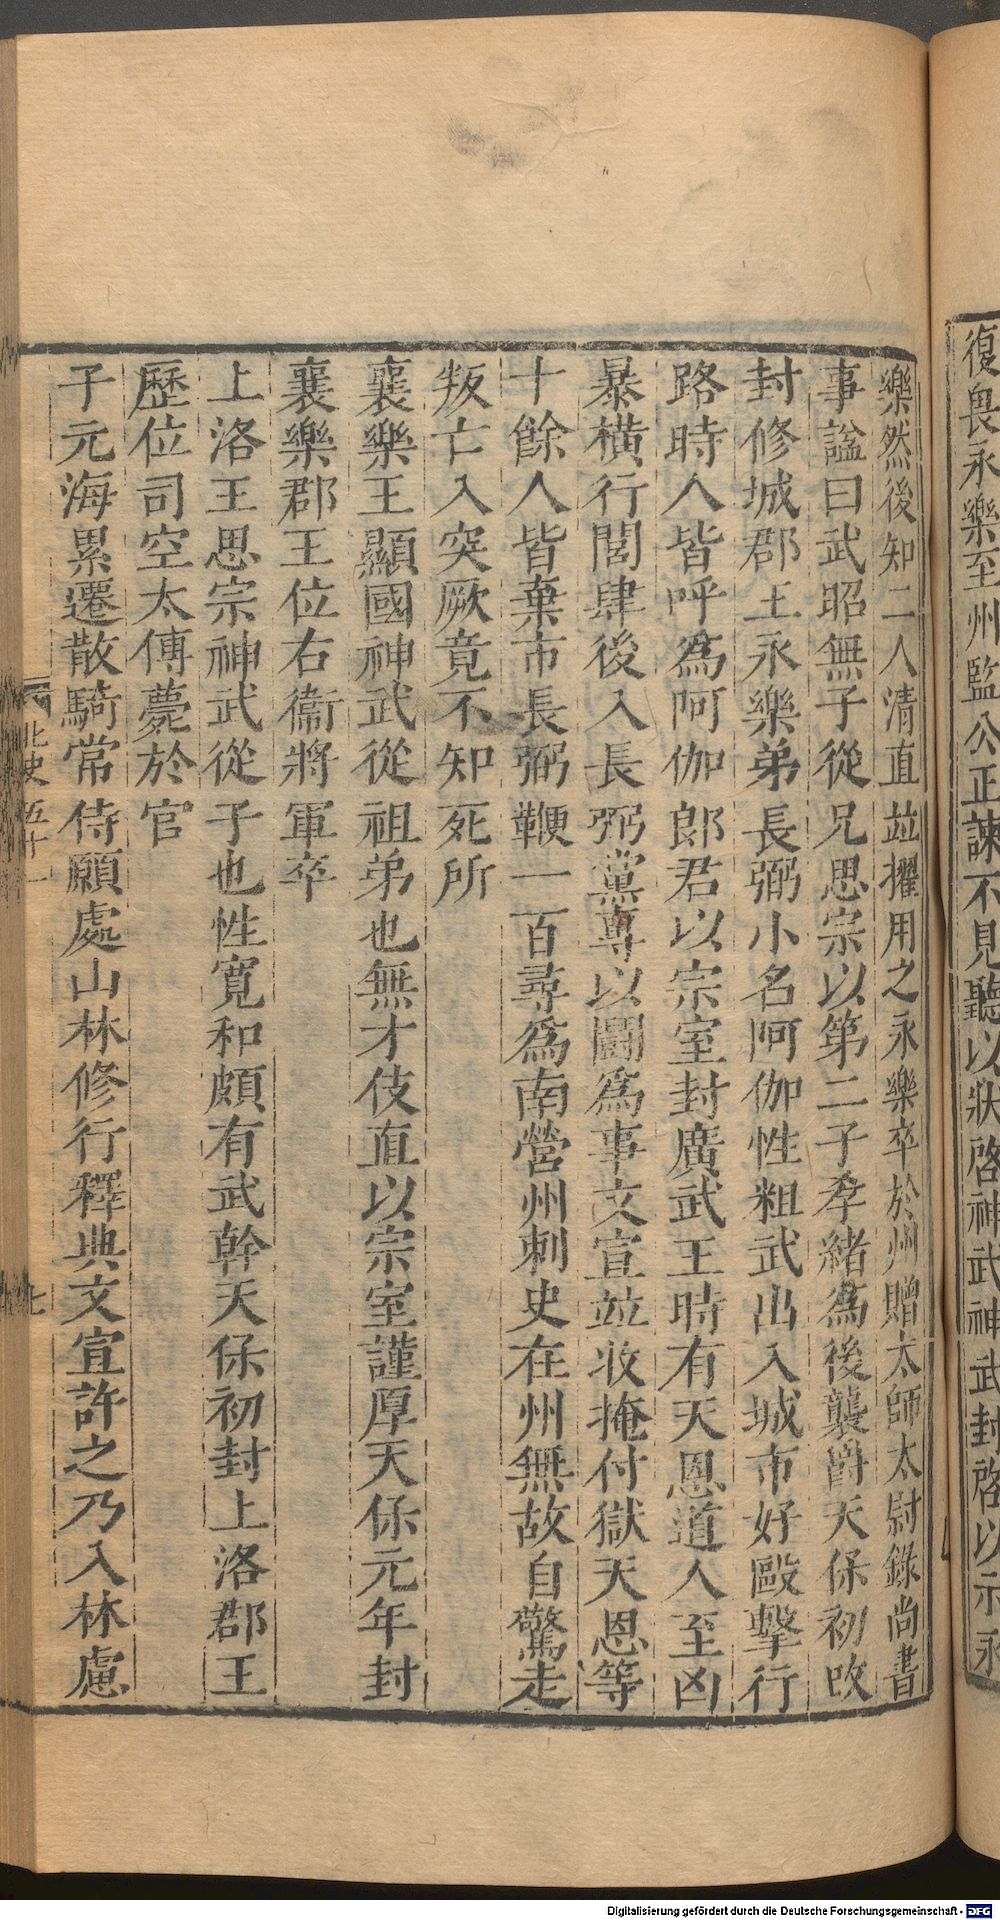 復畏永樂至州監公正諫不見聽以狀啓神武神武封啓以示永
樂然後知二人清直並擢用之永樂卒於州贈太師太尉錄尚書
事諡曰武昭無子從兄思宗以第二子孝緒爲後襲爵天保初改
封修城郡王永樂弟長弼小名阿伽性粗武出入城市好毆擊行
路時人皆呼爲阿伽郎君以宗室封廣武王時有天恩道人至凶
暴橫行閭肆後入長弼黨專以鬬爲事文宣並收掩付獄天恩等
十餘人皆棄市長弼鞭一百尋爲南營州刺史在州無故自驚走
叛亡入突厥竟不知死所
襄樂王顯國神武從祖弟也無才伎直以宗室謹厚天保元年封
襄樂郡王位右衞將軍卒
上洛王思宗神武從子也性寬和頗有武幹天保初封上洛郡王
歷位司空太傅薨於官
子元海累遷散騎常侍願處山林修行釋典文宣許之乃入林慮
北史五十一
七
Digitalisierung gefördert durch die Deutsche Forschungsgemeinschaft - DFG